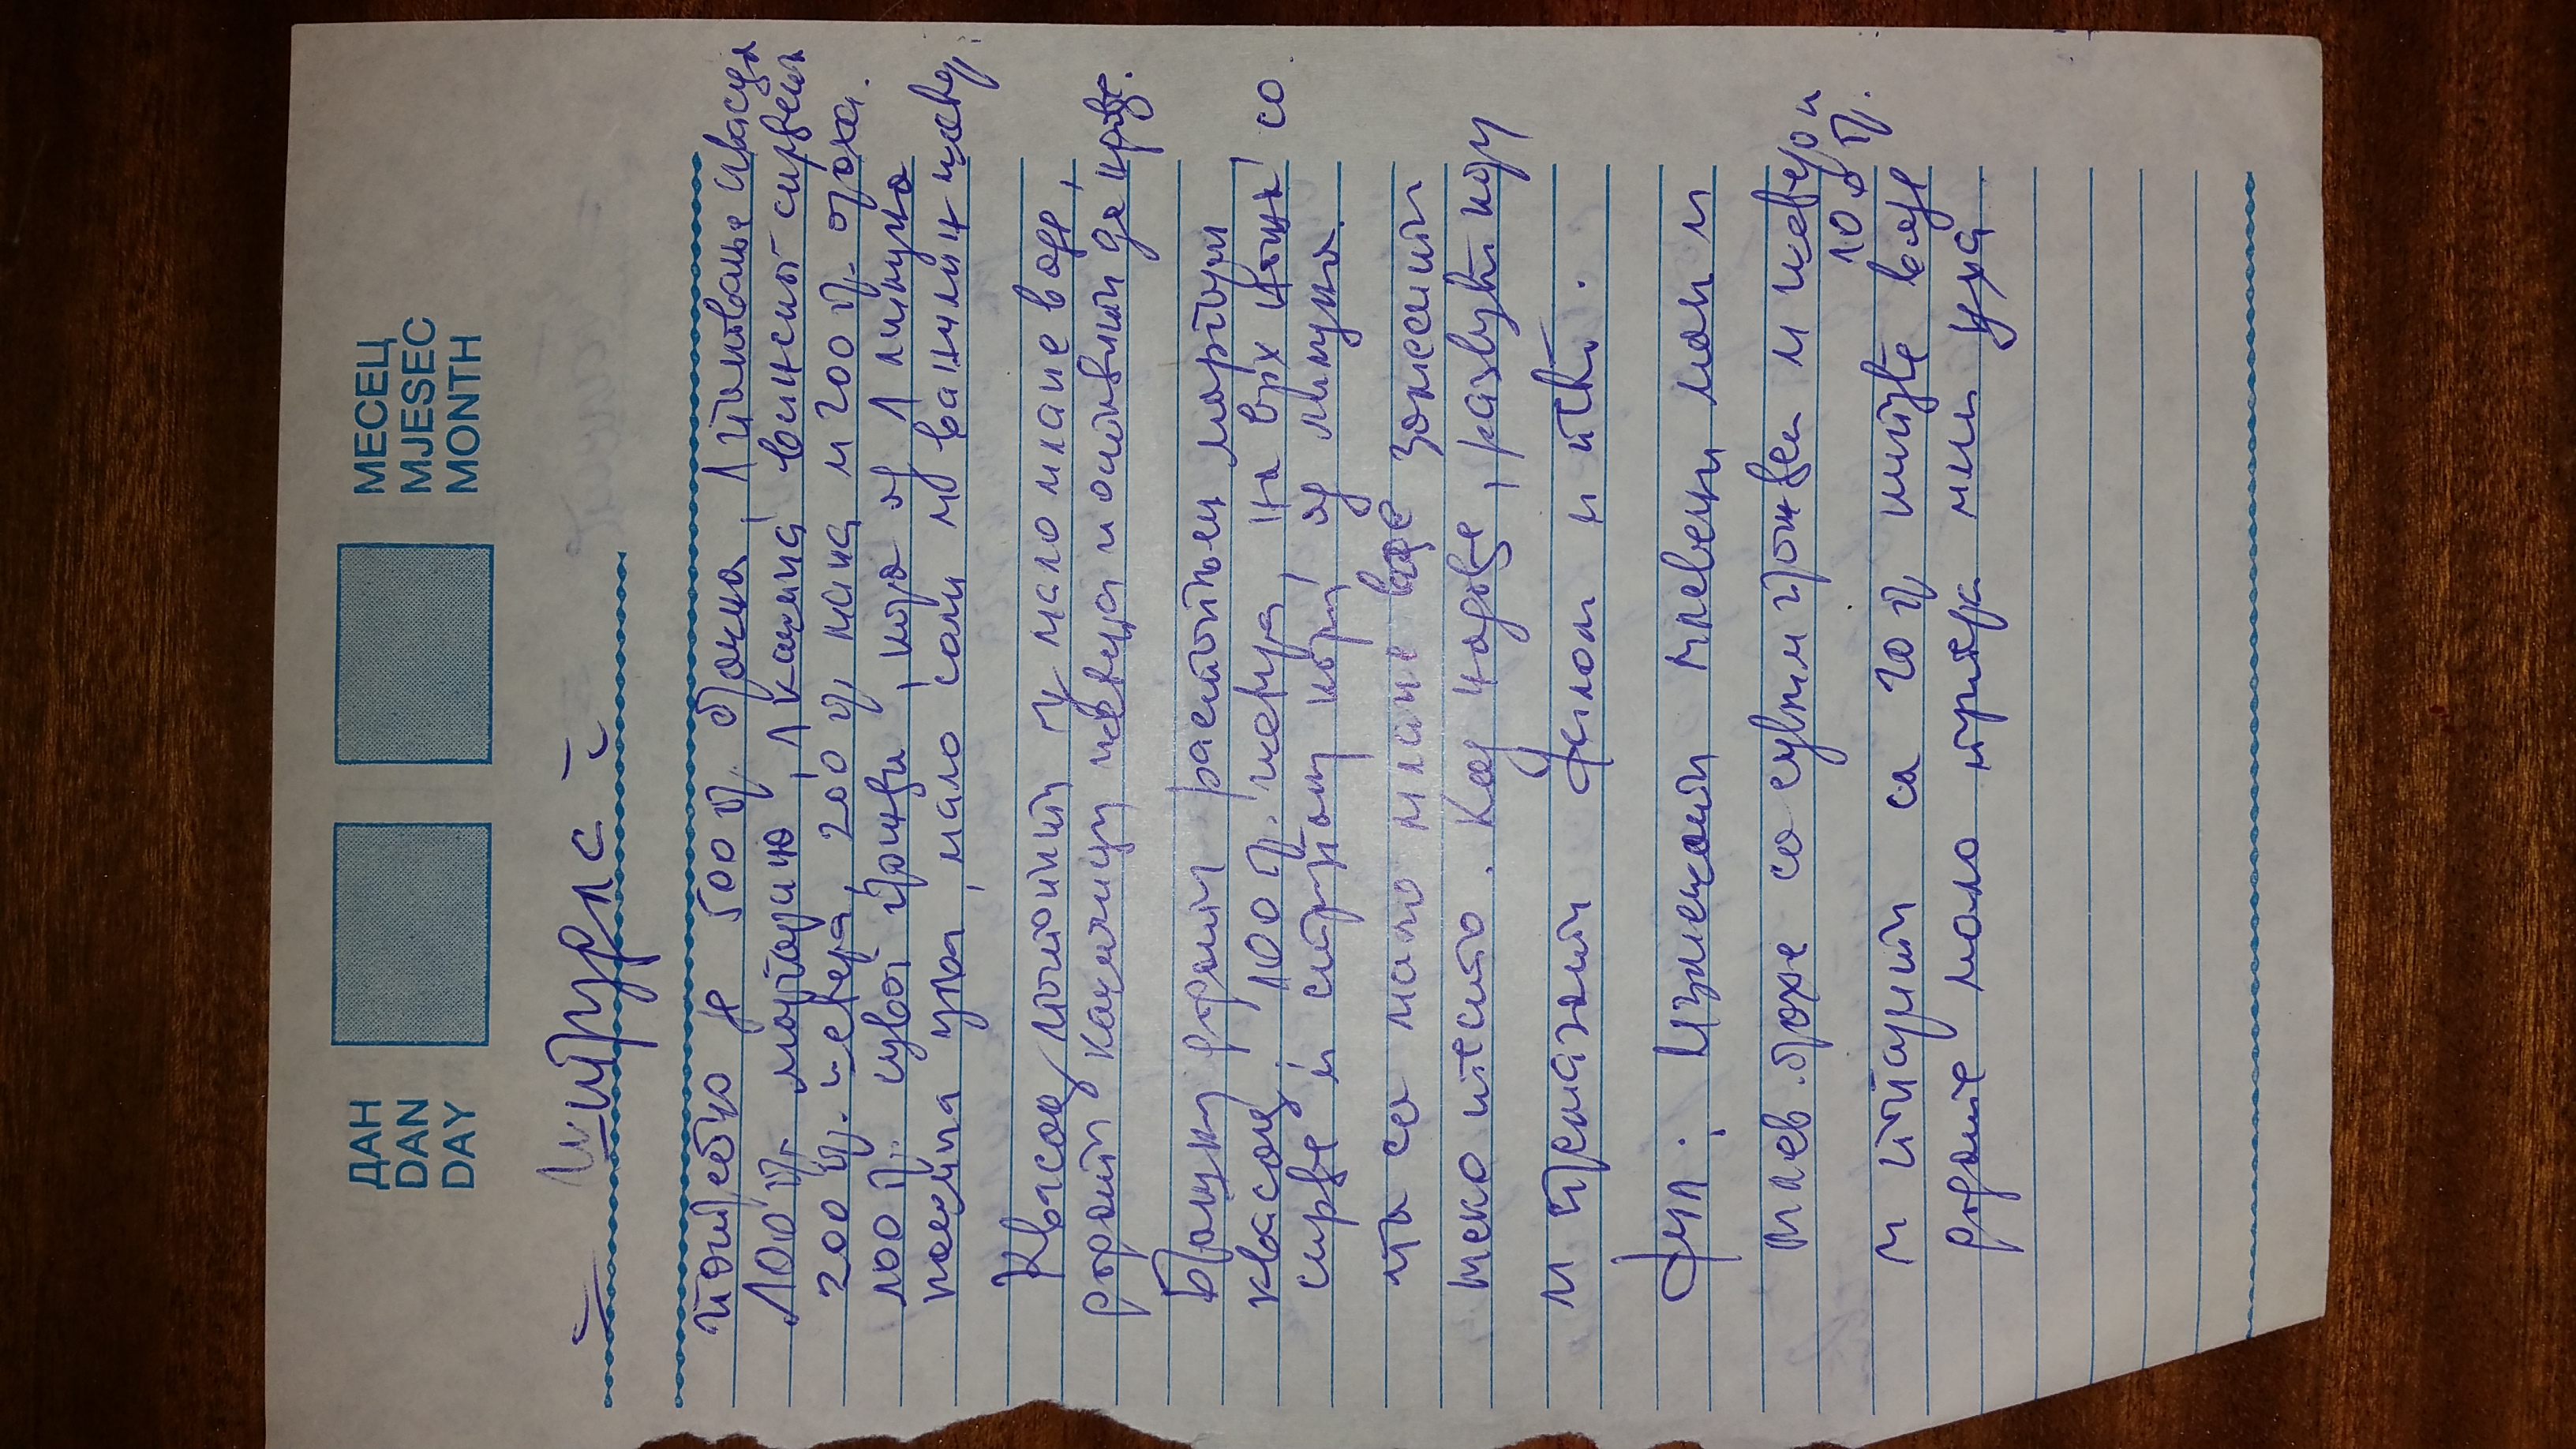 ДАН
DAN
DAY
МЕСЕЦ
MJESEC
MONTH
= Штрудла =
Потребно је 500 гр. брашна, 1 паковање квасца
100 гр. маргарина, 1 кашика винског сирћета
200 гр. шећера, 200 гр. мака и 200 гр. ораха.
100 гр. сувог грожђа, кора од 1 лимуна
кашика уља, мало соли и ванилин шећер.
Квасац потопити у мало млаке воде,
додати кашичицу шећера и оставити да нађе.
Брашну додати растопљен маргарин,
квасац, 100 гр. шећера, на врх ножа со
сирће и стругану кору од лимуна.
па са мало млаке воде замесити
меко тесто. Кад надође, развући кору
и премазати филом и пећи.
Фил: Измешати млевени мак и
млев. орахе са сувим грожђем и шећером
100 гр.
и попарити са 20 гр кипуће воде
додати мало цимета или